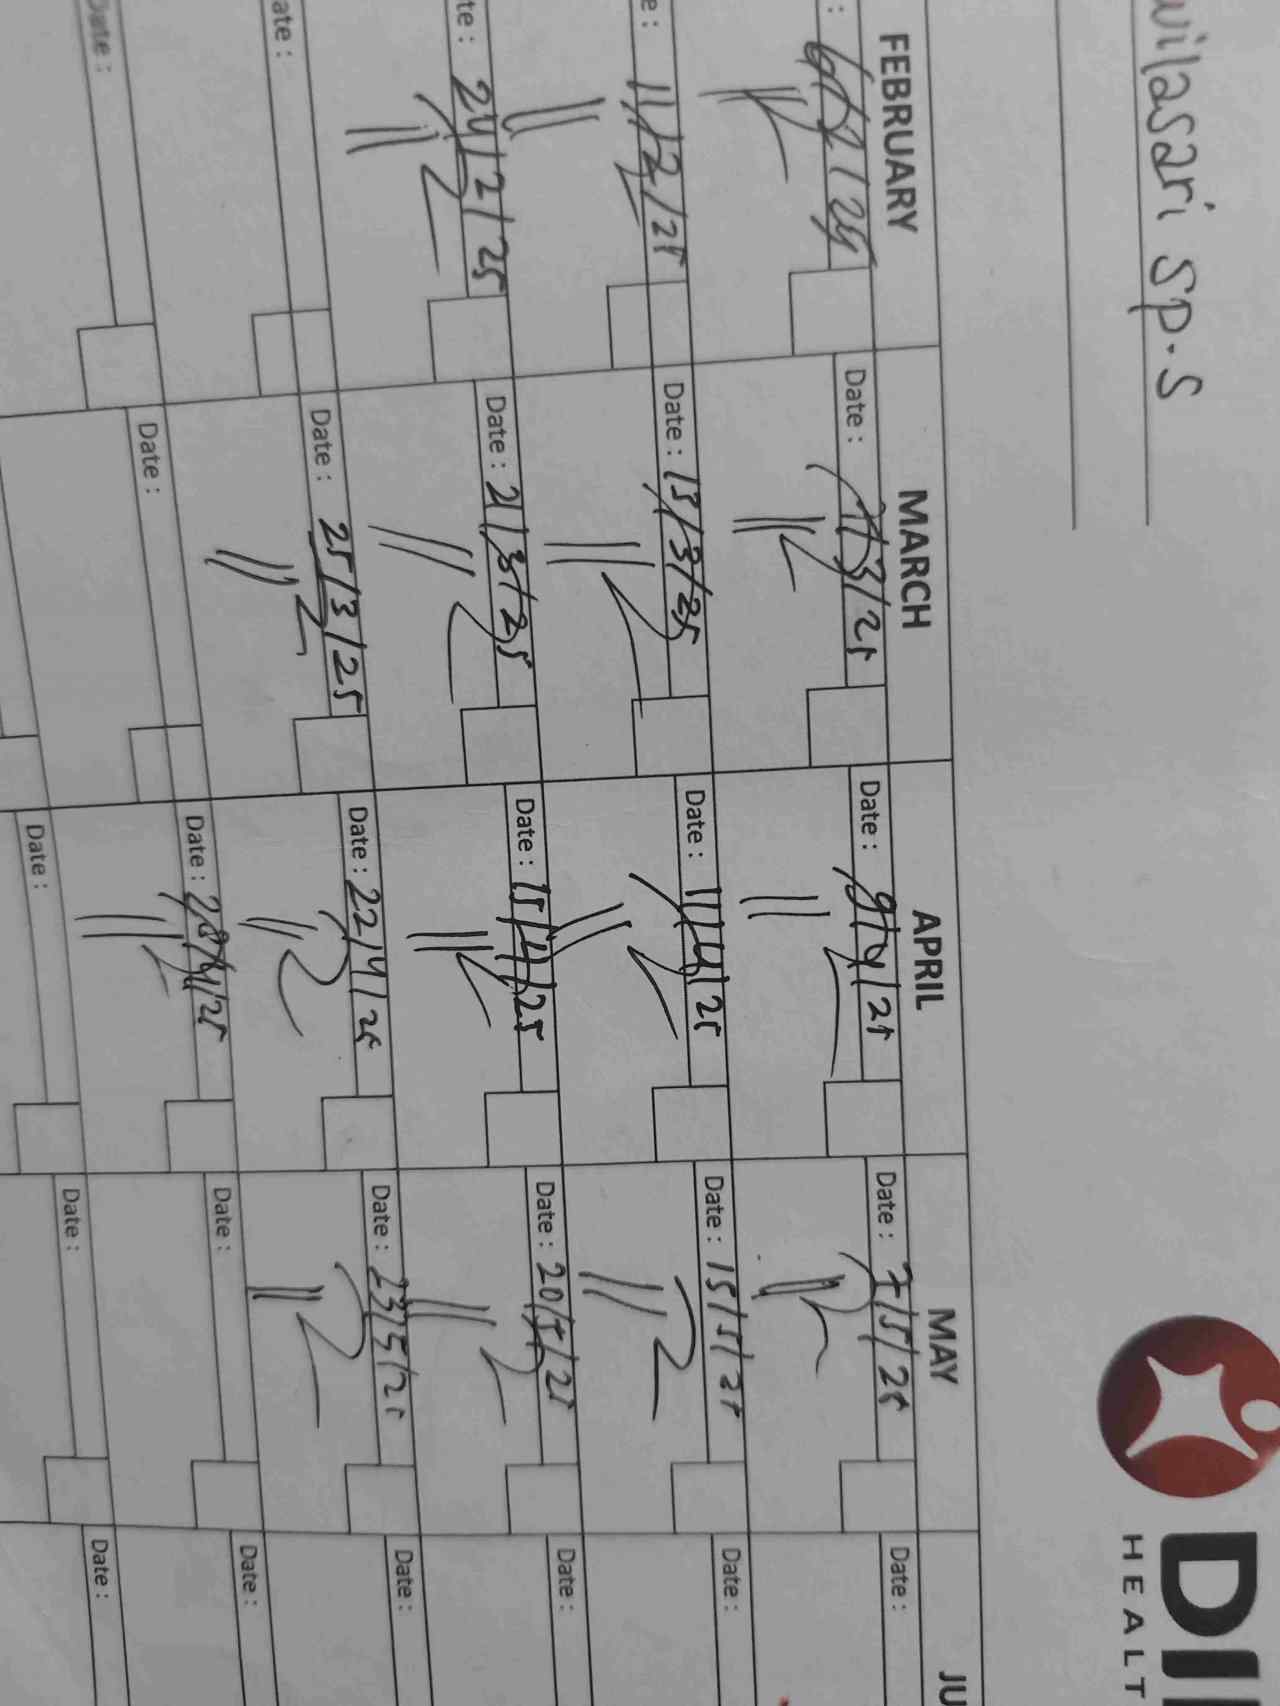 wilasari sp.s
DI
HEALT
FEBRUARY MARCH APRIL MAY JU
: Date : 7/3/25 Date : 9/4/25 Date : 7/5/25 Date :
e : 11/2/25 Date : 13/3/25 Date : 11/4/25 Date : 15/5/25 Date :
te : 24/2/25 Date : 21/3/25 Date : 15/4/25 Date : 20/5/25 Date :
ate : Date : 25/3/25 Date : 22/4/25 Date : 23/5/25 Date :
Date : Date : Date : 28/4/25 Date : Date :
Date : Date : Date :